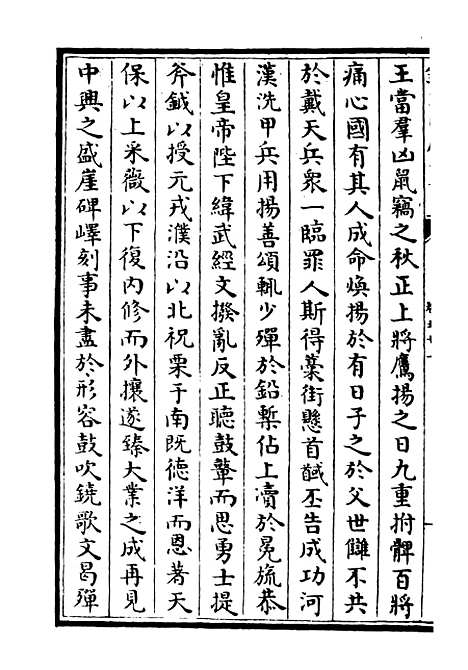 王當羣凶鼠竊之秋正上將鷹揚之日九重拊髀百將
痛心國有其人成命煥揚於有日子之於父世讎不共
於戴天兵衆一臨罪人斯得藁街懸首馘丕告成功河
漢洗甲兵用揚善頌輒少殫於鉛槧佔上瀆於冕旒恭
惟皇帝陛下緯武經文撥亂反正聽鼓鼙而思勇士提
斧鉞以授元戎濮沿以北祝栗于南既德洋而恩著天
保以上采薇以下復内修而外攘遂臻大業之成再見
中興之盛崖碑嶧刻事未盡於形容鼓吹鐃歌文曷殫